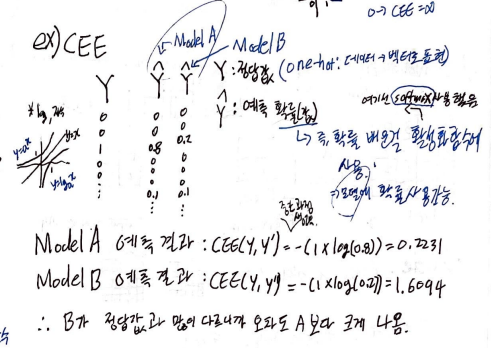 0→ CEE=∞
ex) CEE
Model A
Model B
Y Ŷ Ŷ
Y : 정답값 (one-hot: 데이터→벡터로 표현)
Ŷ : 예측 확률(값)
여기선 softmax 사용 했음
↳ 즉, 확률 배운걸 활성화함수에
사용.
⇒ 모델에 확률 사용가능.
* log, 지수
y=aˣ
y=x
y=logₐx
0
0
1 0.8 0.2
0 0
0 0
0 0.1 0.1
⋮ ⋮ ⋮
중간과정 생략
Model A 예측결과 : CEE(Y, Y') = -(1×log(0.8)) = 0.2231
Model B 예측결과 : CEE(Y, Y') = -(1×log(0.2)) = 1.6094
∴ B가 정답값과 많이 다르니까 오차도 A보다 크게 나옴.